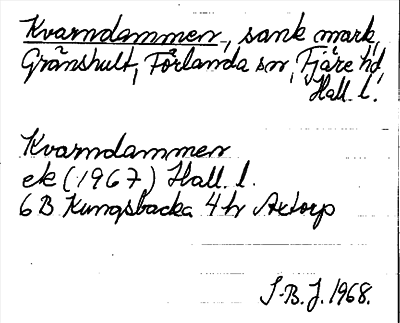 Kvarndammen, sank mark,
Gränshult, Förlanda sn, Fjäre hd,
Hall. l.
Kvarndammen
ek (1967) Hall. l.
6 B Kungsbacka 4 h Axtorp
S.B.J. 1968.